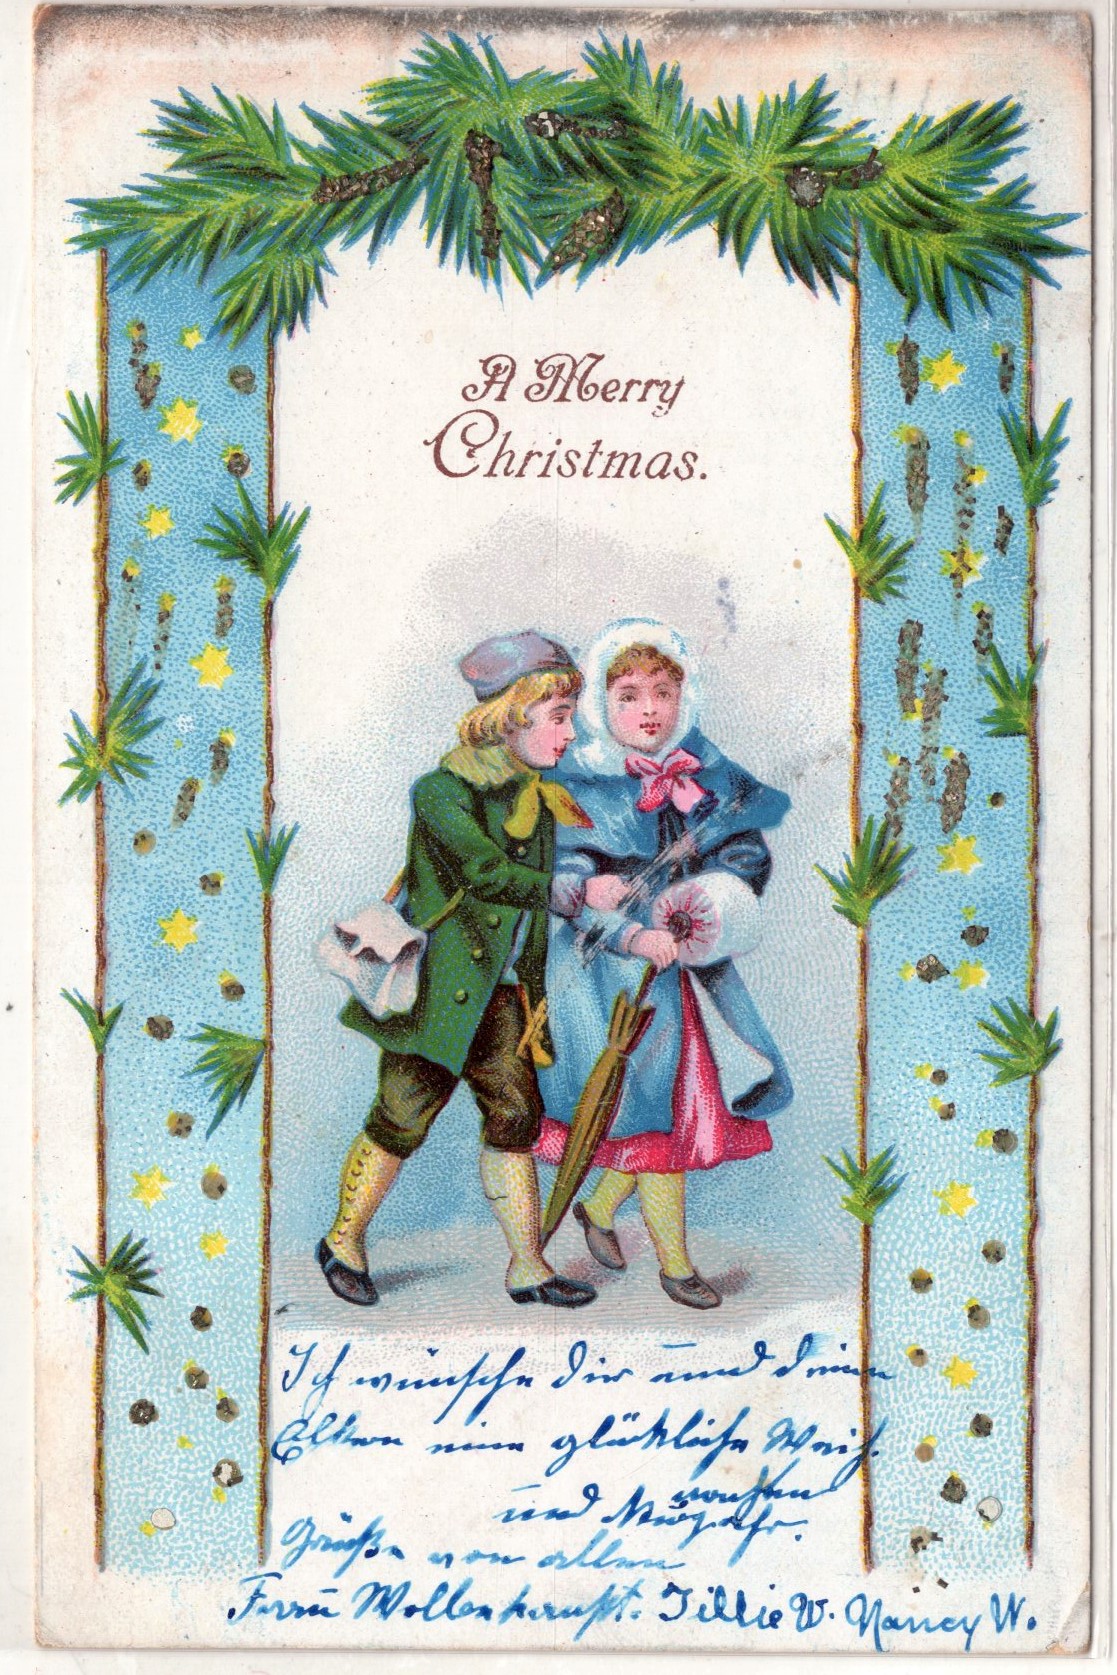 A Merry
Christmas.
Ich wünsche Dir und deinen
Eltern eine glückliche Weih-
nachten
und Neujahr.
Grüße von allen
Tillie W. Nancy W.